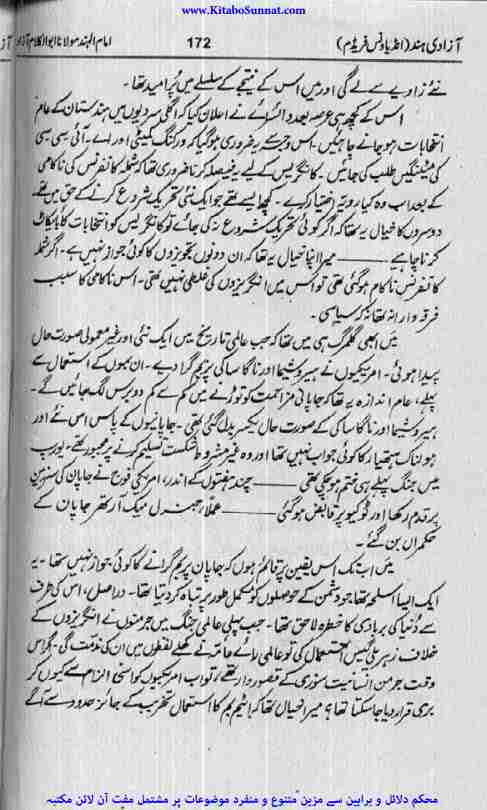 www.KitaboSunnat.com
آزادی ہند (انڈیا ونس فریڈم) 172 امام الہند مولانا ابوالکلام آزاد
نئے زاویے سے لے گی اور میں اس کے نتیجے کے سلسلے میں پُر امید تھا۔
اس کے کچھ ہی عرصہ بعد وائسرائے نے اعلان کیا کہ اگلی سردیوں میں ہندستان کے عام
انتخابات ہو جانے چاہئیں۔ اس وجہ سے یہ ضروری ہو گیا کہ ورکنگ کمیٹی اور اے۔ آئی۔سی۔سی
کی میٹنگیں طلب کی جائیں۔ کانگریس کے لیے یہ فیصلہ کرنا ضروری تھا کہ شملہ کانفرنس کی ناکامی
کے بعد اب وہ کیا رویّہ اختیار کرے۔ کچھ ایسے تھے جو ایک نئی تحریک شروع کرنے کے حق میں تھے۔
دوسروں کا خیال یہ تھا کہ اگر کوئی تحریک شروع نہ کی جائے تو کانگریس کو انتخابات کا بائیکاٹ
کرنا چاہیے ——— میرا اپنا خیال یہ تھا کہ ان دونوں تجویزوں کا کوئی جواز نہیں ہے۔ اگر شملہ
کانفرنس ناکام ہو گئی تھی تو اس میں انگریزوں کی غلطی نہیں تھی۔ اس ناکامی کا سبب
فرقہ وارانہ تھا نہ کہ سیاسی۔
میں ابھی گلمرگ ہی میں تھا کہ جب عالمی تاریخ میں ایک نئی اور غیر معمولی صورت حال
پیدا ہوئی۔ امریکیوں نے ہیروشیما اور ناگاساکی پر بم گرا دیے۔ ان بموں کے استعمال سے
پہلے، عام اندازہ یہ تھا کہ جاپانی مزاحمت کو توڑنے میں کم سے کم دو برس لگ جائیں گے۔
ہیروشیما اور ناگاساکی کے صورت حال یکسر بدل گئی تھی۔ جاپانیوں کے پاس اس نئے اور
ہولناک ہتھیار کا کوئی جواب نہیں تھا اور وہ غیر مشروط شکست تسلیم کرنے پر مجبور تھے۔ یورپ
میں جنگ پہلے ہی ختم ہو چکی تھی ——— چند ہفتوں کے اندر، امریکی فوج نے جاپان کی سرزمین
پر قدم رکھا اور ٹوکیو پر قابض ہو گئی ——— عملاً، جنرل میک آرتھر جاپان کے
حکمراں بن گئے۔
میں اب تک اس یقین پر قائم ہوں کہ جاپان پر بم گرانے کا کوئی جواز نہیں تھا۔ یہ
ایک ایسا اسلحہ تھا جو دشمن کے حوصلوں کو مکمل طور پر تباہ کر دیتا تھا۔ دراصل، اس کی طرف
سے دُنیا کی بربادی کا خطرہ لاحق تھا۔ جب پہلی عالمی جنگ میں جرمنوں نے انگریزوں کے
خلاف زہریلی گیس استعمال کی تو عالمی رائے عامہ نے کھلے لفظوں میں ان کی مذمت کی۔ گر اس
وقت جرمن انسانیت سوزی کے قصوروار تھے، تو اب امریکیوں کو اسی الزام سے کیوں کر
بری قرار دیا جا سکتا تھا؟ میرا خیال تھا کہ ایٹم بم کا استعمال تخریب کے جائز حدود سے آگے
محکم دلائل و براہین سے مزین متنوع و منفرد موضوعات پر مشتمل مفت آن لائن مکتبہ